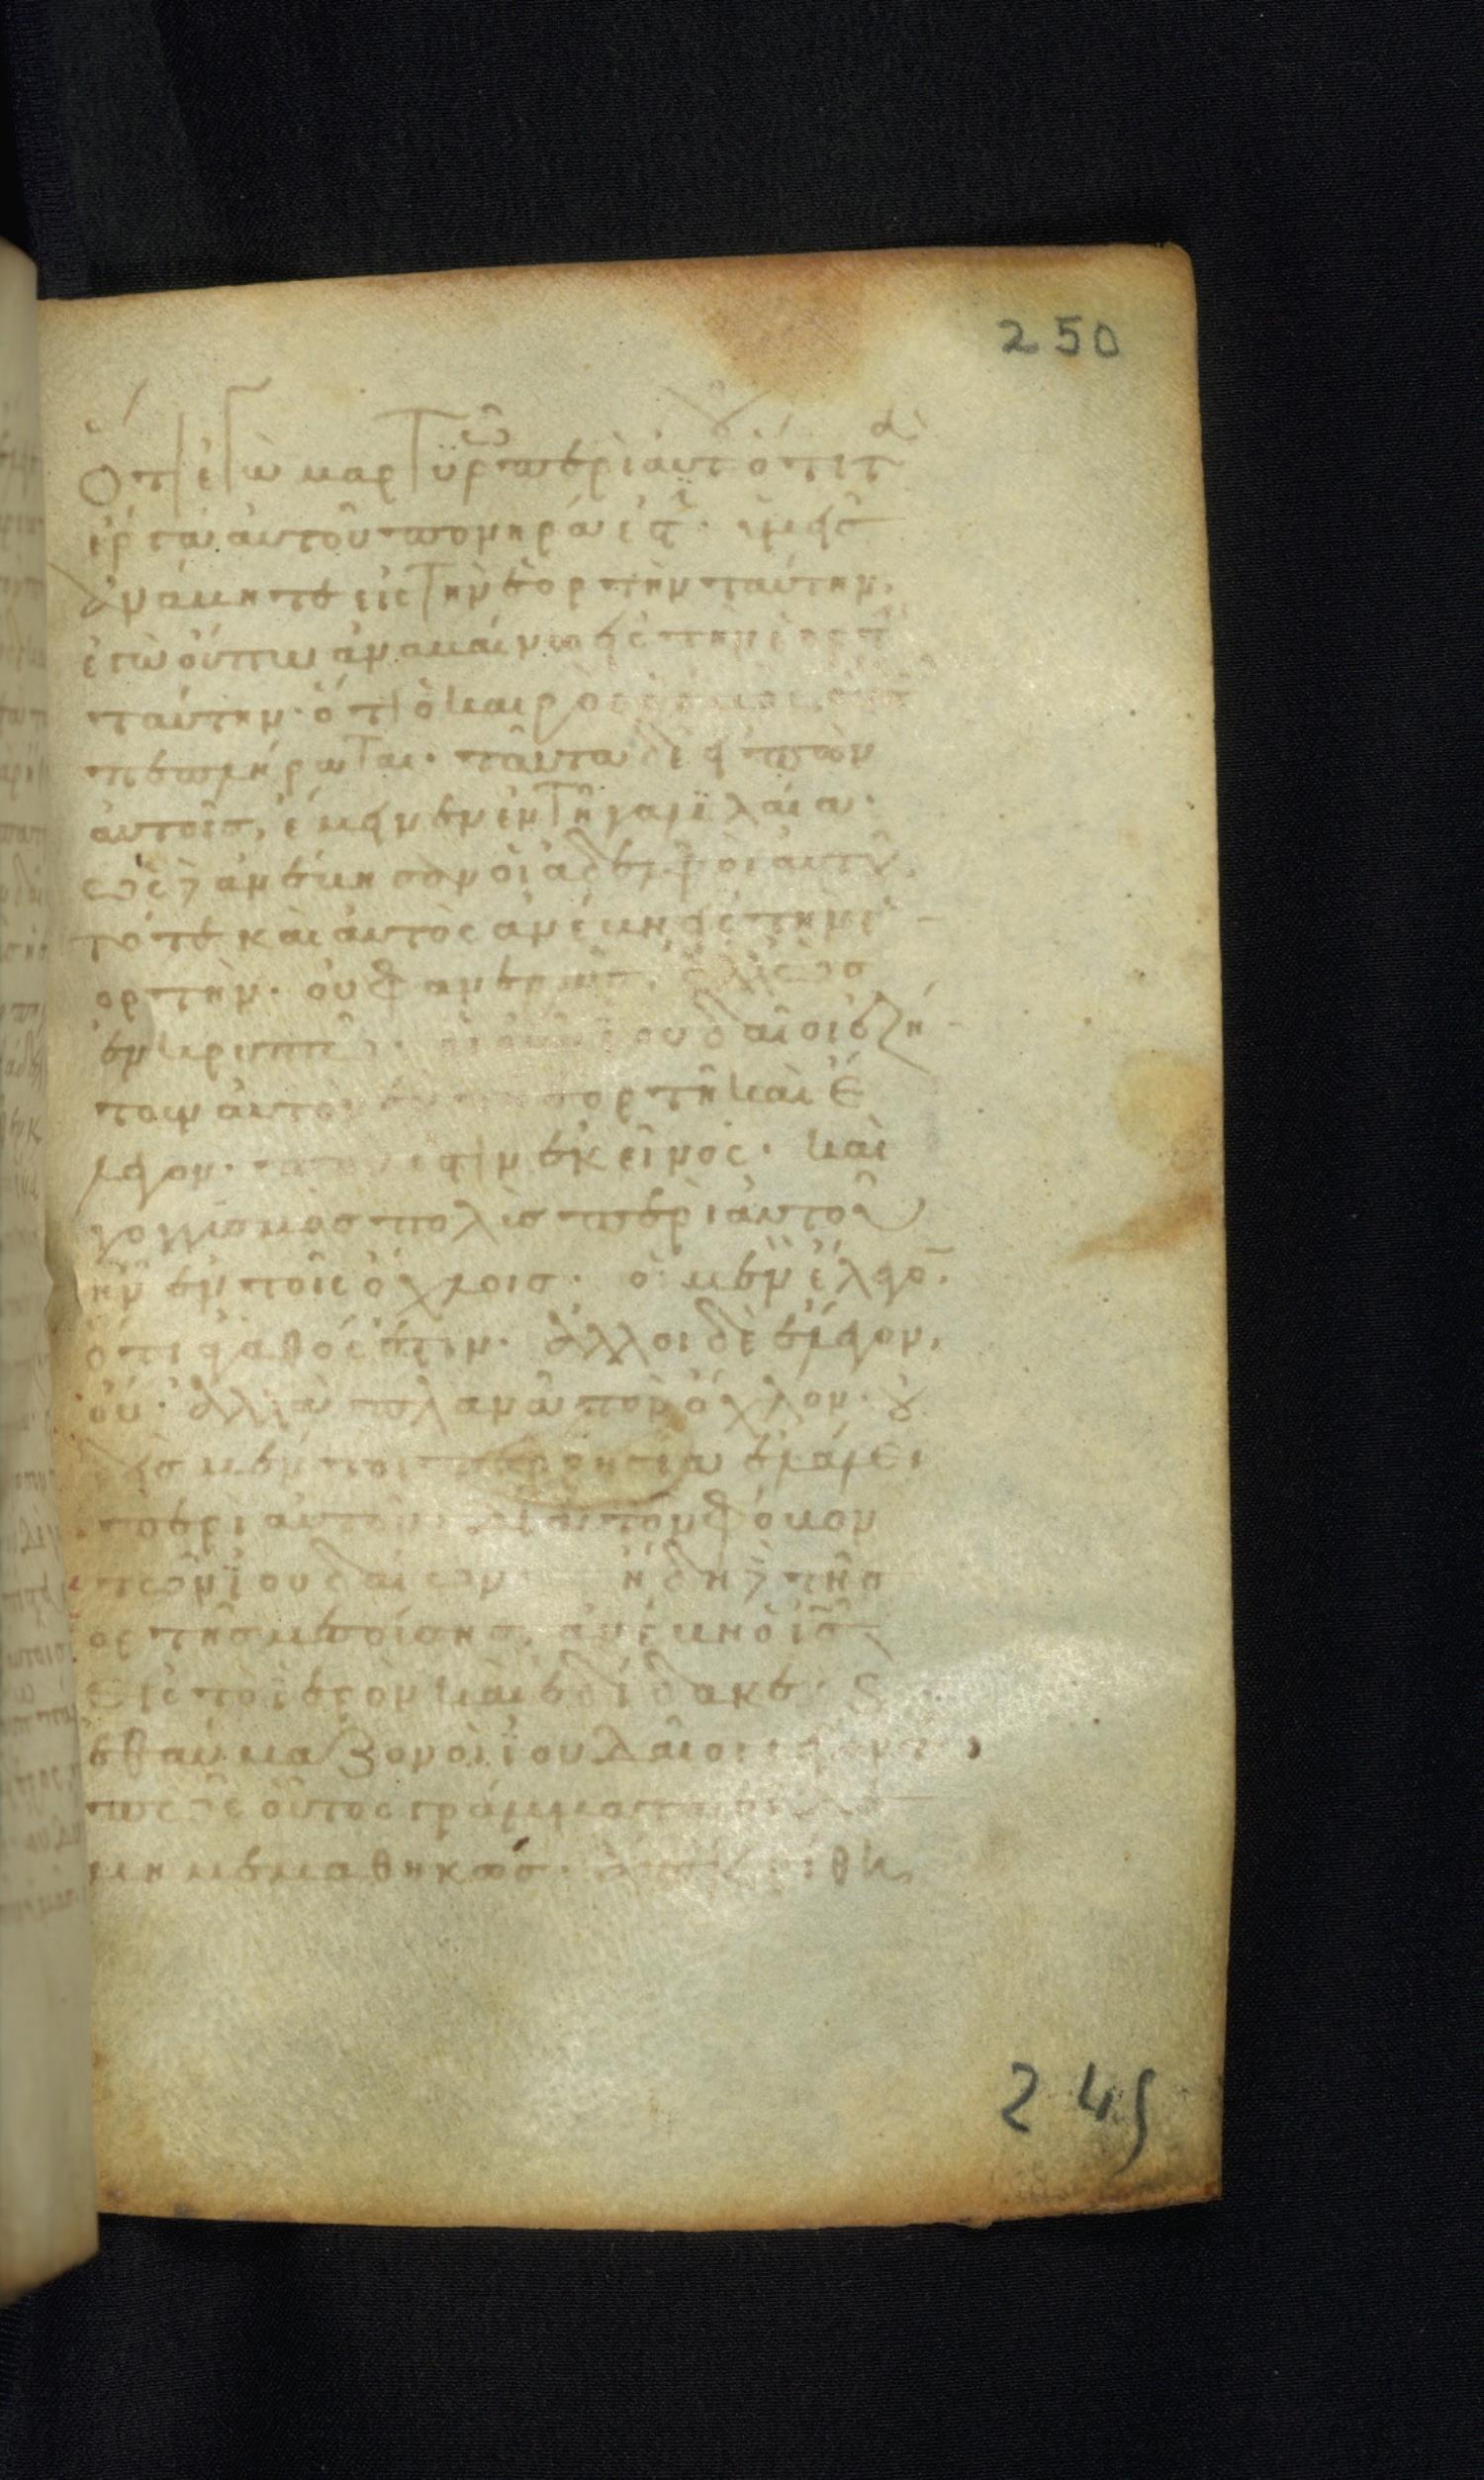 250
ὅτι ἐγὼ μαρτϋρῶ περὶ αυτοῦ ὅτι τὰ
ἔργα αὐτοῦ πονηρά ἐστιν· ὑμεῖς
ἀνάβητε εἰς τὴν ἑορτὴν ταύτην,
ἐγὼ οὔπω ἀναβαίνω εἰς τὴν ἑορτὴν
ταύτην· ὅτι ὁ καιρὸς ὁ ἐμὸς οὔπω
πεπλήρωται· ταῦτα δὲ εἰπὼν
αὐτοῖς, ἔμεινεν ἐν τῆ γαλιλαία·
ὡς δὲ ἀνέβησαν οἱ ἀδελφοὶ αυτοῦ,
τότε καὶ αὐτὸς ἀνέβη εἰς τὴν ἑ
ορτὴν· οὐ φανερῶς, ἀλλ' ὡς
ἐν κρυπτῶ· οἱ οὖν ϊουδαῖοι ἐζή
τουν αὐτὸν ἐν τῆ ἑορτῆ καὶ ἔ
λεγον· ποῦ ἐστιν ἐκεῖνος· καὶ
γογγυσμὸς πολὺς περὶ αὐτοῦ
ἦν ἐν τοῖς ὄχλοις· οἱ μὲν ἔλεγον·
ὅτι ἀγαθός ἐστιν· ἄλλοι δὲ ἔλεγον,
οὔ· ἀλλὰ πλανᾶ τὸν ὄχλον· οὐ
δεὶς μέντοι παρρησία ἐλάλει
περὶ αὐτοῦ· διὰ τὸν φόβον
τῶν ϊουδαίων· ἤδη δὲ τῆς ἑ
ορτῆς μεσούσης, ἀνέβη ὁ ἰς
εἰς τὸ ἱερὸν καὶ ἐδίδασκε· καὶ
ἐθαύμαζον οἱ ϊουδαῖοι λέγοντες,
πῶς οὗτος γράμματα οἶδεν
μὴ μεμαθηκώς· ἀπεκρίθη
249